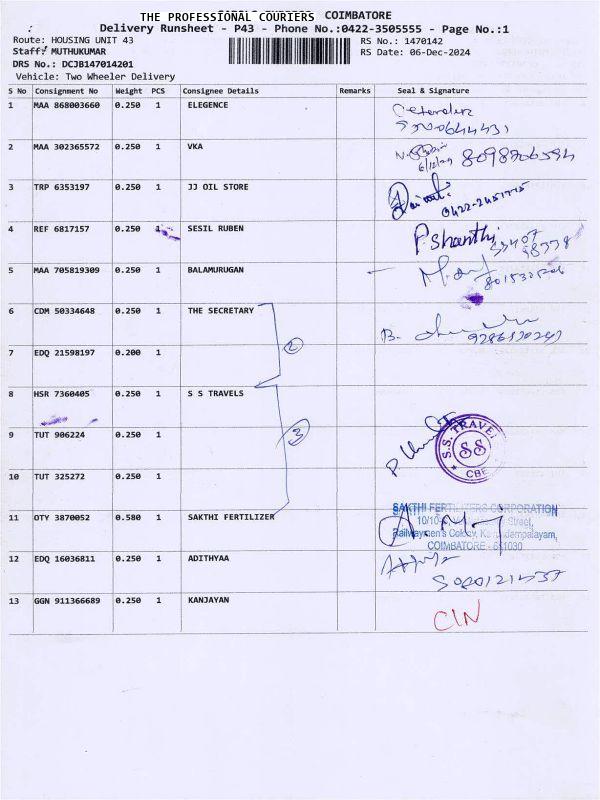 THE PROFESSIONAL COURIERS COIMBATORE
Delivery Runsheet - P43 - Phone No.:0422-3505555 - Page No.:1
Route: HOUSING UNIT 43 RS No.: 1470142
Staff: MUTHUKUMAR RS Date: 06-Dec-2024
DRS No.: DCJB147014201
Vehicle: Two Wheeler Delivery
S No Consignment No Weight PCS Consignee Details Remarks Seal & Signature
1 MAA 868003660 0.250 1 ELEGENCE
2 MAA 302365572 0.250 1 VKA
6/12/24 8098706594
3 TRP 6353197 0.250 1 JJ OIL STORE
4 REF 6817157 0.250 1 SESIL RUBEN P. Shanthi
5 MAA 705819309 0.250 1 BALAMURUGAN
6 CDM 50334648 0.250 1 THE SECRETARY B.
7 EDQ 21598197 0.200 1 2
8 HSR 7360405 0.250 1 S S TRAVELS
9 TUT 906224 0.250 1 3 S.S. TRAVELS SS CBE
10 TUT 325272 0.250 1
11 OTY 3870052 0.580 1 SAKTHI FERTILIZER SAKTHI FERTILIZERS CORPORATION
Street,
Railwaymen's Colony,
COIMBATORE - 641030
12 EDQ 16036811 0.250 1 ADITHYAA
13 GGN 911366689 0.250 1 KANJAYAN CIN